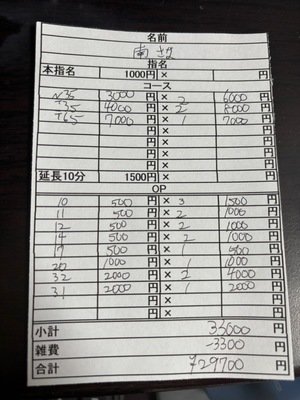 名前
南 さな
指名
本指名 1000円 × 円
コース
N35 3000円 × 2 6000円
T35 4000円 × 2 8000円
T65 7000円 × 1 7000円
円 × 円
円 × 円
円 × 円
円 × 円
延長10分 1500円 × 円
OP
10 500円 × 3 1500円
11 500円 × 2 1000円
12 500円 × 2 1000円
14 500円 × 2 1000円
500円 × 1 500円
20 1000円 × 1 1000円
32 2000円 × 2 4000円
31 2000円 × 1 2000円
円 × 円
小計 33000円
雑費 -3300円
合計 29700円